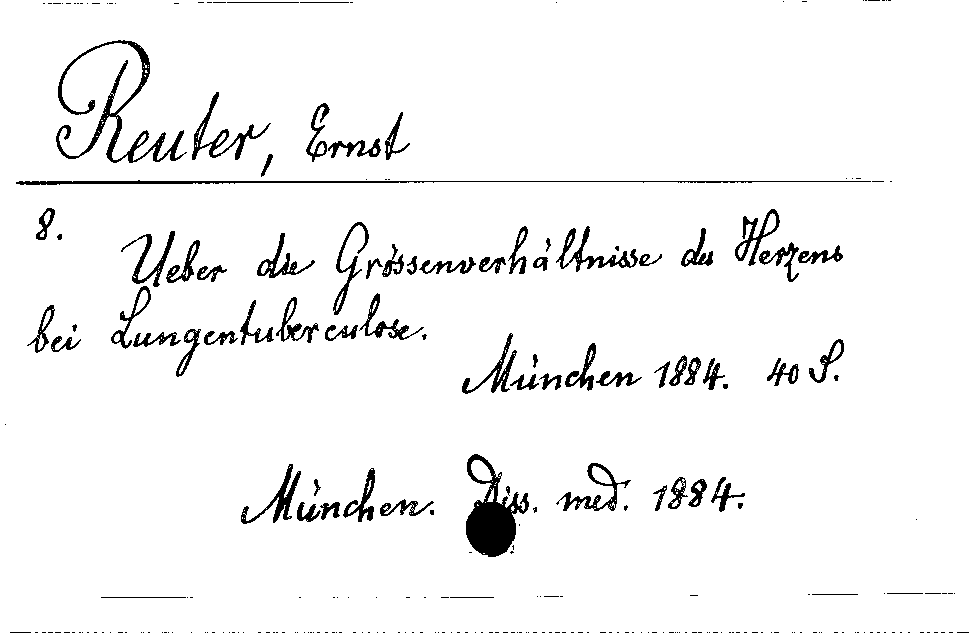 Reuter, Ernst
8.
Ueber die Grössenverhältnisse des Herzens
bei Lungentuberculose.
München 1884. 40 S.
München. Diss. med. 1884.